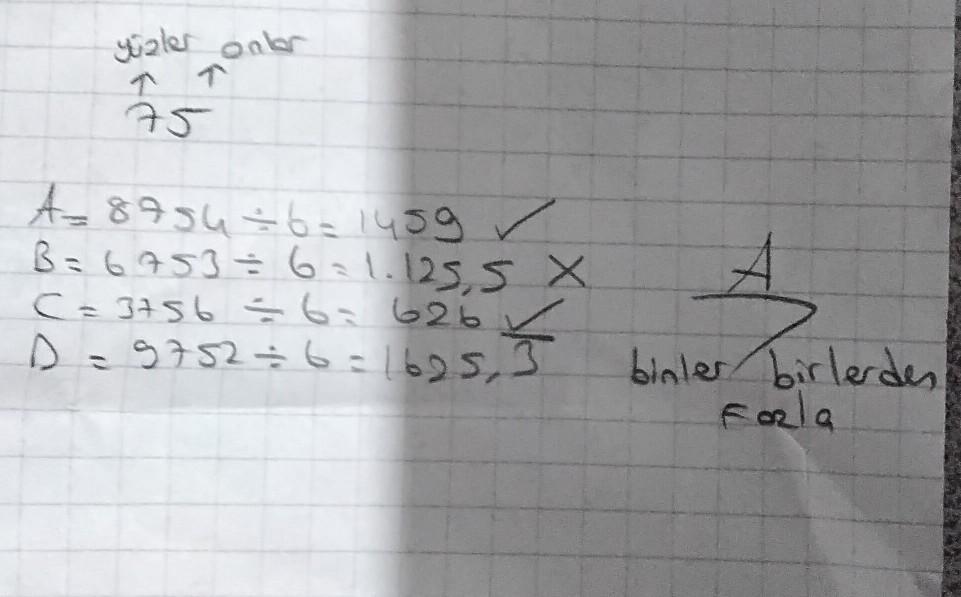 yüzler onlar
↑ ↑
75
A = 8754 ÷ 6 = 1459 ✓
B = 6753 ÷ 6 = 1.125,5 X
C = 3756 ÷ 6 = 626 ✓
D = 9752 ÷ 6 = 1625,3
A
binler birlerden
Fazla